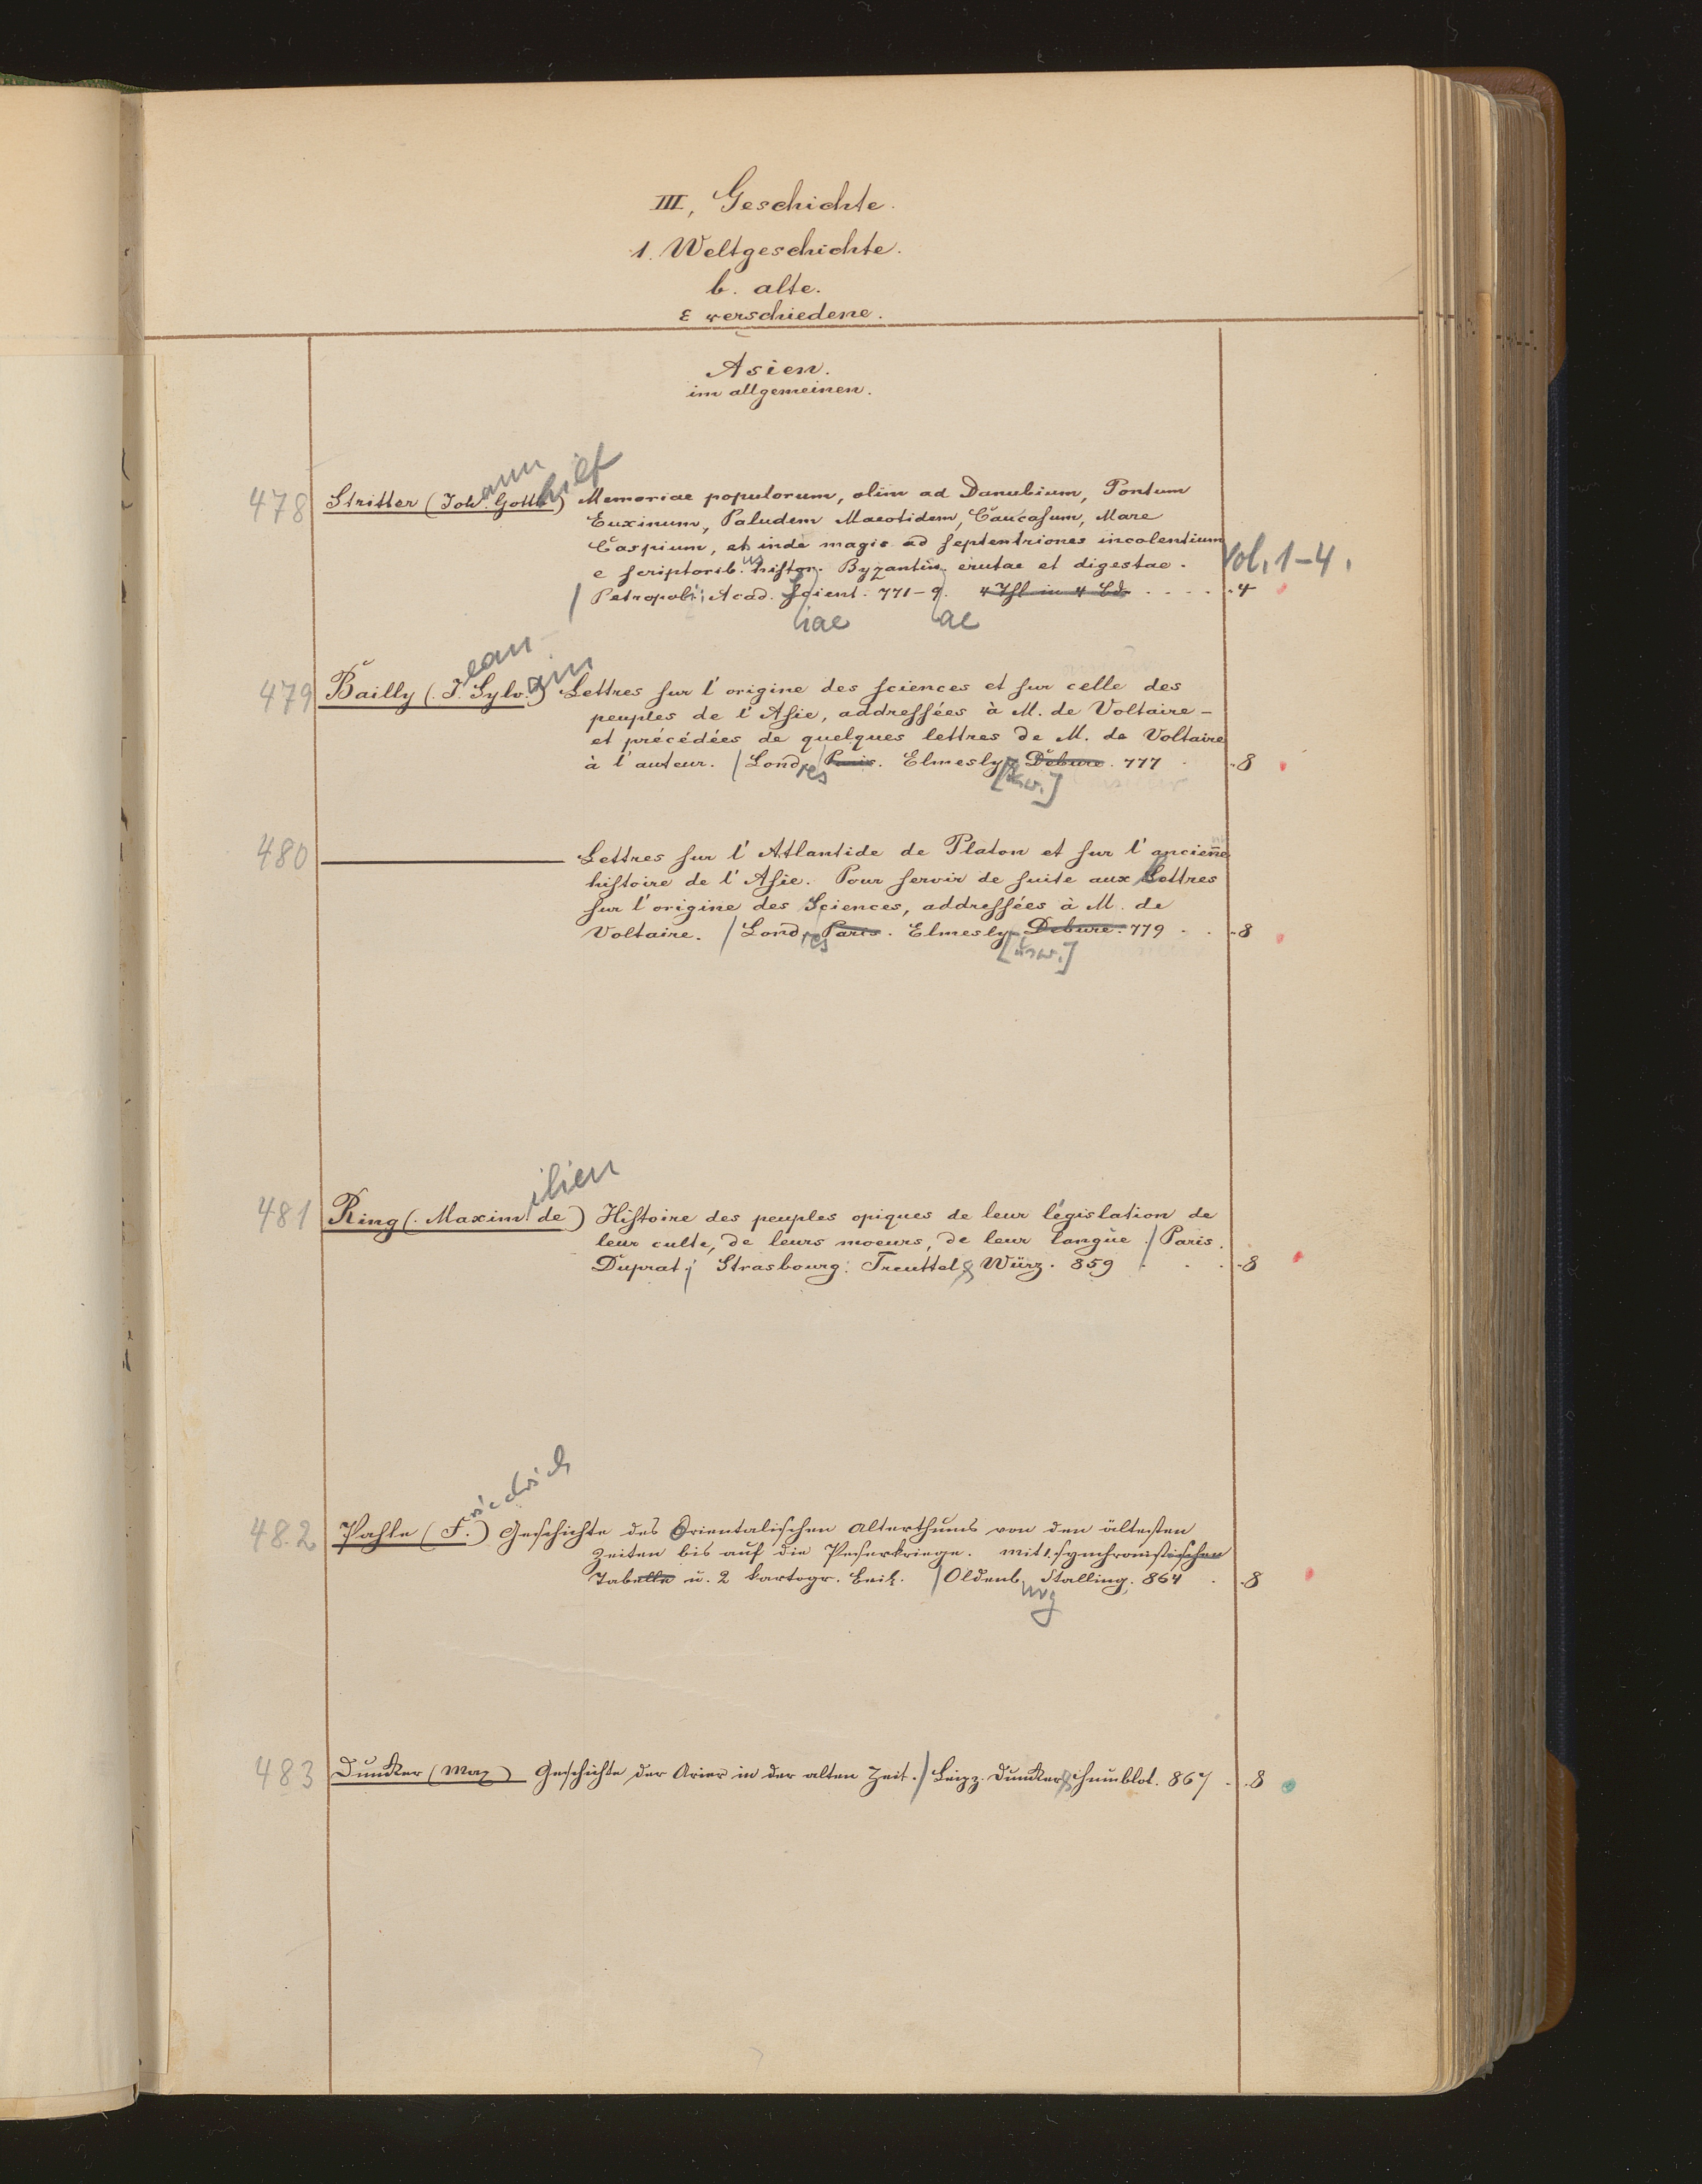 III, Geschichte.
1. Weltgeschichte.
b. alte.
ε verschiedene.
Asien.
im allgemeinen.
478 Stritter (Joh.ann Gotthilf) Memoriae populorum, olim ad Danubium, Pontum
Euxinum, Paludem Maeotidem, Caucasum, Mare
Caspium, et inde magis ad septentriones incolentium
e scriptorib.us histor. Byzantin. erutae et digestae. Vol. 1-4.
/ Petropoli, Acad. Scient. 771-9. 4 Thl in 4 Bd. . . . . . 4
iae ae
479 Bailly (J.ean Sylv.ain) Lettres sur l'origine des sciences et sur celle des
peuples de l'Asie, addressées à M. de Voltaire -
et précédées de quelques lettres de M. de Voltaire
à l'auteur. / Londres Paris. Elmesly & Debure. 777 . . 8
[usw.]
480 ——— Lettres sur l'Atlantide de Platon et sur l'ancien̄e
histoire de l'Asie. Pour servir de suite aux Lettres
sur l'origine des Sciences, addressées à M. de
Voltaire. / Londres Paris. Elmesly Debure. 779 . . . 8
[usw.]
481 Ring (Maxim.ilien de) Histoire des peuples opiques de leur législation de
leur culte, de leurs moeurs, de leur langue. / Paris.
Duprat; Strasbourg: Treuttel & Würz. 859 . . . . 8
482 Pahle (F.riedrich) Geschichte des Orientalischen Alterthums von den ältesten
Zeiten bis auf die Perserkriege. mit 1. synchronistischen
Tabelle u. 2 kartogr. Beil. / Oldenburg Stalling. 864 . . 8
483 Duncker (Max) Geschichte der Arier in der alten Zeit. / Leipz. Duncker & Humblot. 867 . . 8